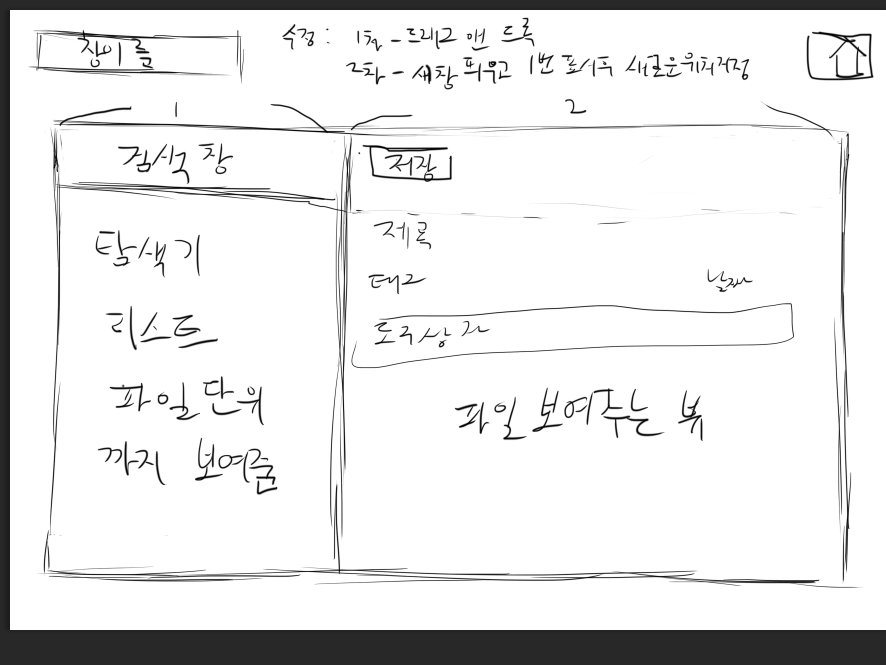 창이름
수정 : 1차 - 드래그 앤 드롭
2차 - 새창 띄우고 1번 표시후 새로운위치저장
1
2
검색창
저장
탐색기
리스트
파일단위
까지 보여줌
제목
태그
날짜
도구상자
파일 보여주는 뷰